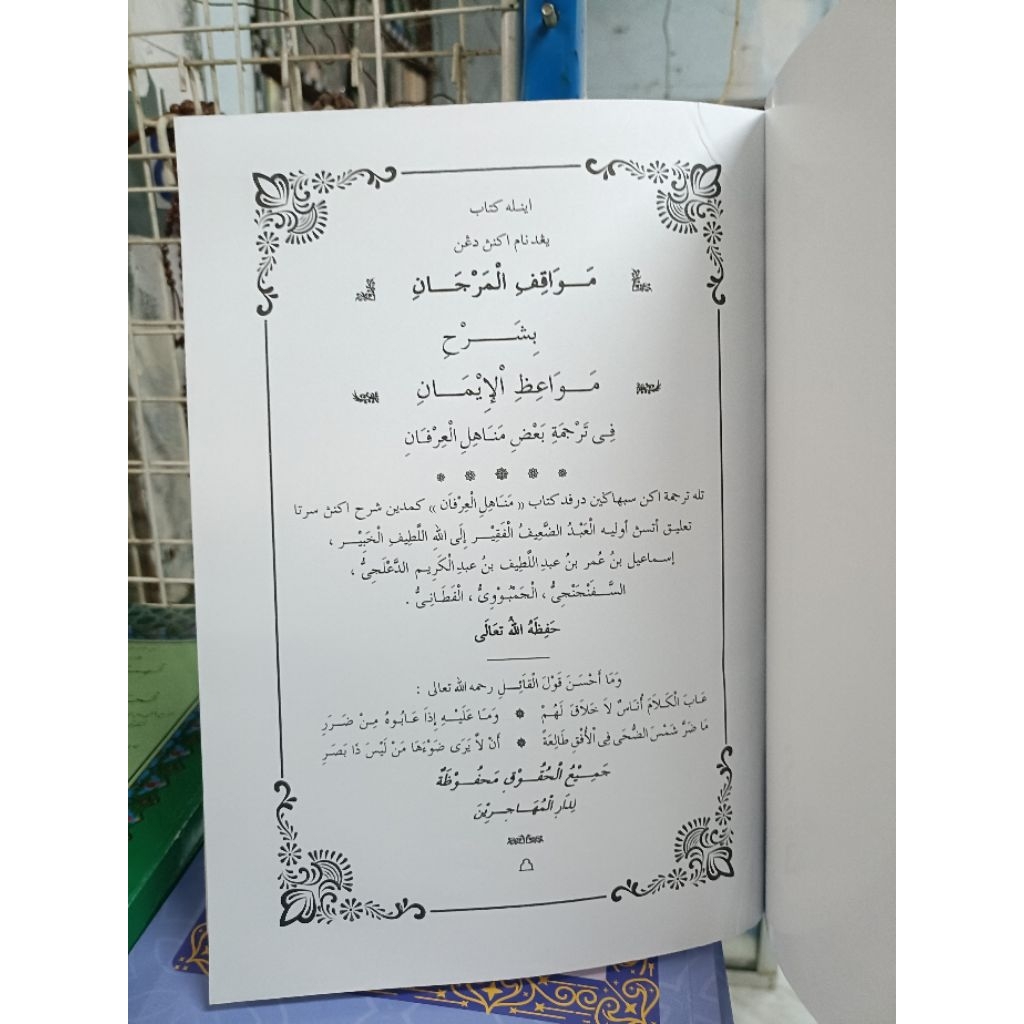 اينله كتاب
يڠد نام اكنث دڠن
مَوَاقِفِ الْمَرْجَانِ
بِشَرْحِ
مَوَاعِظِ الْإِيْمَانِ
فِى تَرْجَمَةِ بَعْضِ مَنَاهِلِ الْعِرْفَانِ
تله ترجمة اكن سبهاڬين درفد كتاب «مَنَاهِلِ الْعِرْفَان» كمدين شرح اكنث سرتا
تعليق أتسث أوليه الْعَبْدُ الضَّعِيفُ الْفَقِيْر إِلَى اللهِ اللَّطِيفِ الْخَبِيْر ،
إسماعيل بنُ عُمر بنُ عبدِ اللَّطِيف بنُ عبدِ الْكَرِيم الدَّعْلَجِىُّ ،
السَّفَنْجَنْجِىُّ ، الْجَمْبُوْوِىُّ ، الْفَطَانِىُّ .
حَفِظَهُ اللهُ تَعَالَى
وَمَا أَحْسَنَ قَوْلَ الْقَائِلِ رحمه الله تعالى :
عَابَ الْكَلَامَ أُنَاسٌ لَا خَلَاقَ لَهُمْ ۞ وَمَا عَلَيْهِ إِذَا عَابُوهُ مِنْ ضَرَرِ
مَا ضَرَّ شَمْسَ الضُّحَى فِى الْأُفْقِ طَالِعَةً ۞ أَنْ لَا يَرَى ضَوْءَهَا مَنْ لَيْسَ ذَا بَصَرِ
جَمِيْعُ الْحُقُوْقِ مَحْفُوْظَةٌ
لِدَارِ الْمُهَاجِرِيْنَ